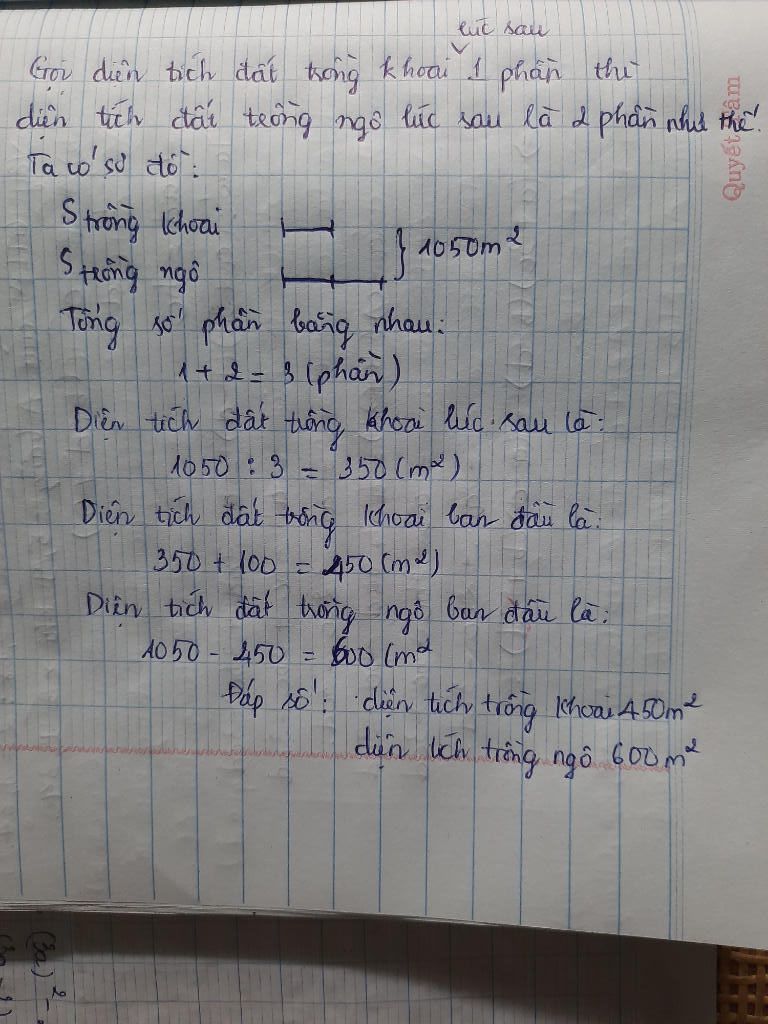 lúc sau
Gọi diện tích đất trồng khoai 1 phần thì
diện tích đất trồng ngô lúc sau là 2 phần như thế.
Ta có sơ đồ:
S trồng khoai
S trồng ngô
} 1050m²
Tổng số phần bằng nhau:
1 + 2 = 3 (phần)
Diện tích đất trồng khoai lúc sau là:
1050 : 3 = 350 (m²)
Diện tích đất trồng khoai ban đầu là:
350 + 100 = 450 (m²)
Diện tích đất trồng ngô ban đầu là:
1050 - 450 = 600 (m²
Đáp số: diện tích trồng khoai 450m²
diện tích trồng ngô 600m²